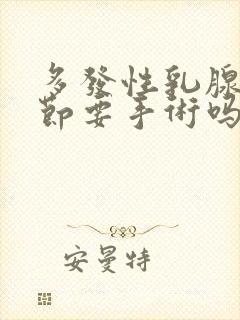 多發性乳腺
節要手術吗
安曼特